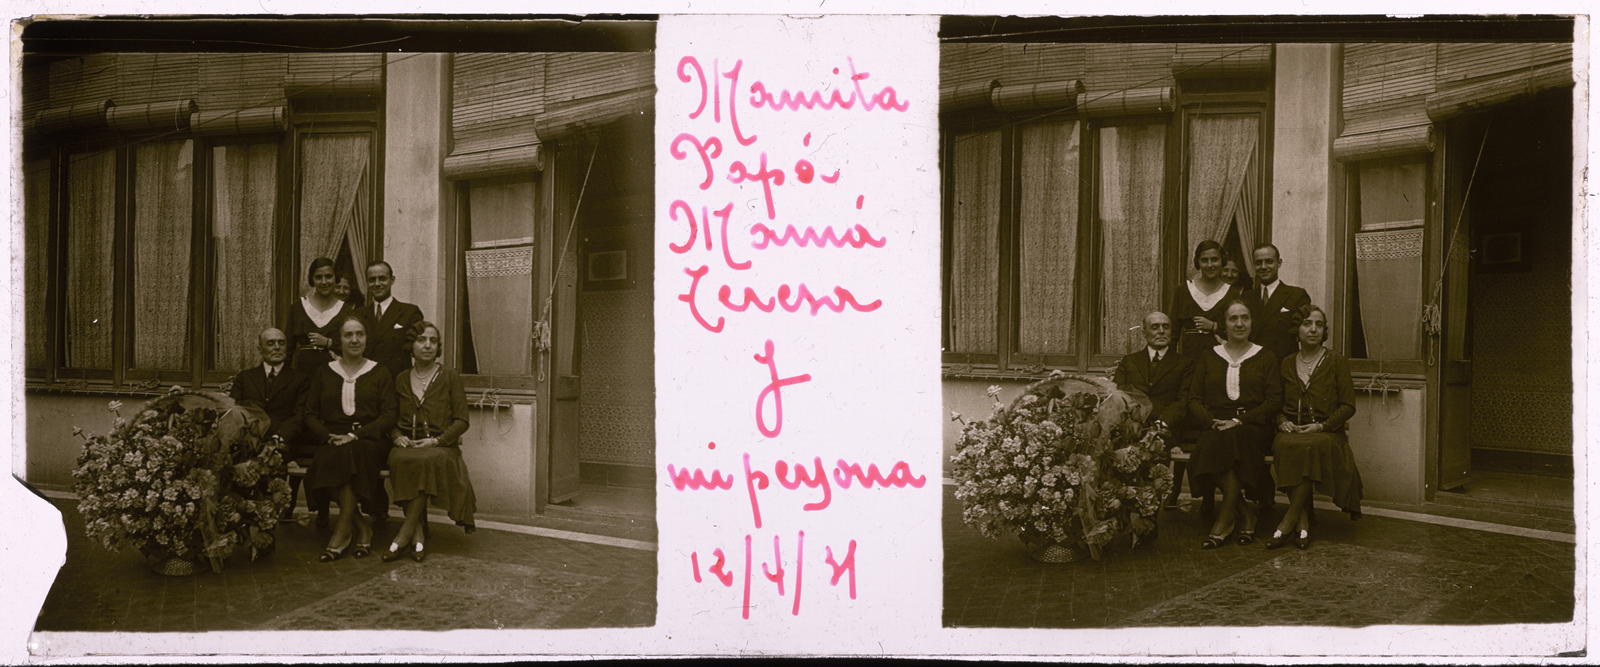 Mamita
Papá
Mamá
Teresa
y
mi persona
12/4/31